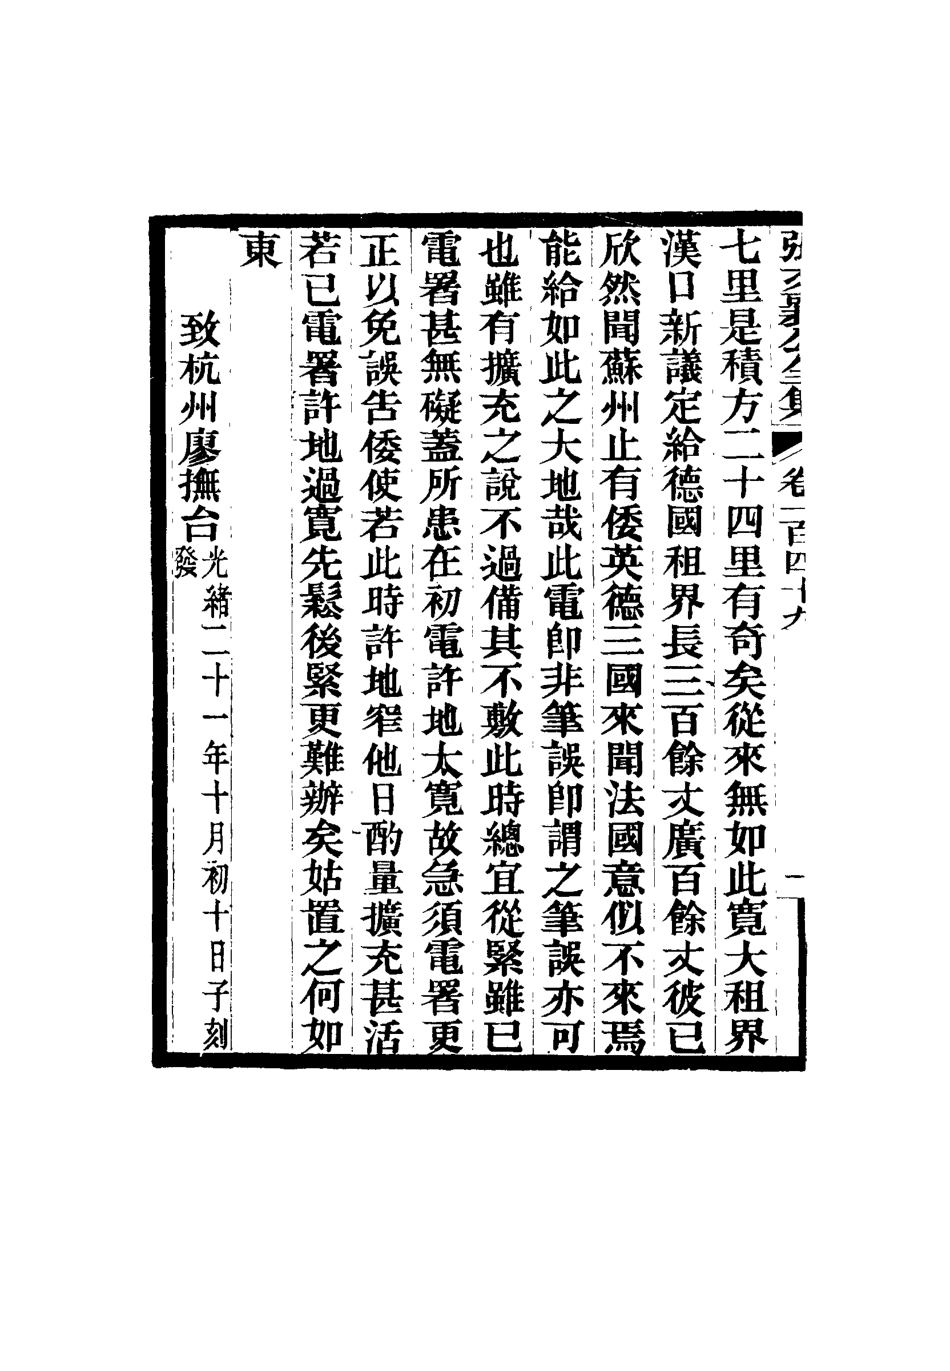 張文襄公全集 卷一百四十九 一
七里是積方二十四里有奇矣從來無如此寬大租界
漢口新議定給德國租界長三百餘丈廣百餘丈彼已
欣然聞蘇州止有倭英德三國來聞法國意似不來焉
能給如此之大地哉此電卽非筆誤卽謂之筆誤亦可
也雖有擴充之說不過備其不敷此時總宜從緊雖已
電署甚無礙蓋所患在初電許地太寬故急須電署更
正以免誤吿倭使若此時許地窄他日酌量擴充甚活
若已電署許地過寬先鬆後緊更難辦矣姑置之何如
東
致杭州廖撫台光緒二十一年十月初十日子刻
發